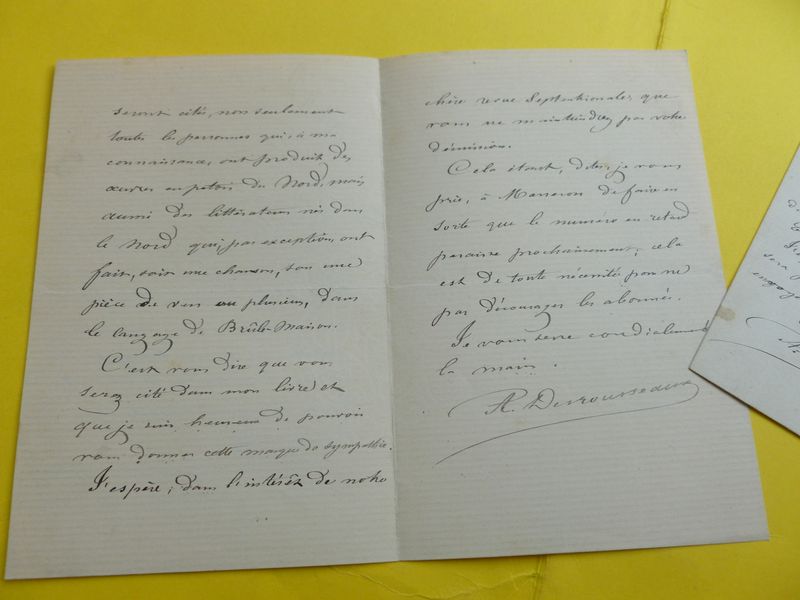 seront cités, non seulement
toutes les personnes qui, à ma
connaissance, ont produit des
œuvres en patois du Nord, mais
aussi des littérateurs nés dans
le Nord qui, par exception, ont
fait, soit une chanson, soit une
pièce de vers ou plusieurs, dans
le langage de Brûle-Maison.
C'est vous dire que vous
serez cité dans mon livre et
que je suis heureux de pouvoir
vous donner cette marque de sympathie.
J'espère, dans l'intérêt de notre
chère revue Septentrionale, que
vous ne maintiendrez pas votre
démission.
Cela étant, dites, je vous
prie, à Masseron de faire en
sorte que le numéro en retard
paraisse prochainement; cela
est de toute nécessité pour ne
pas décourager les abonnés.
Je vous serre cordialement
la main.
A. Desrousseaux